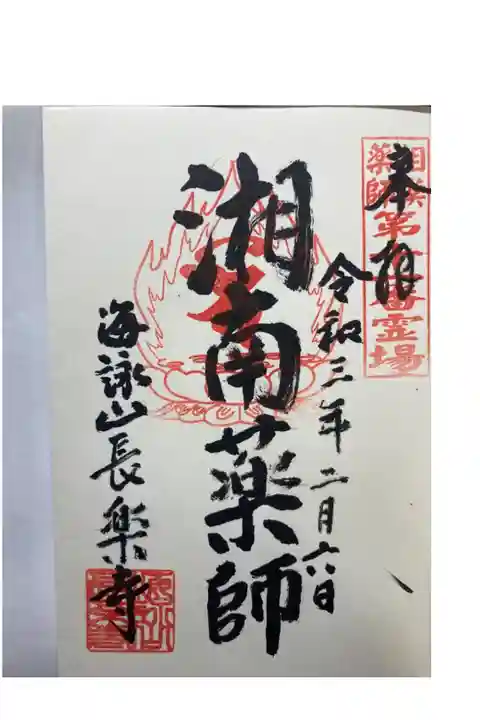 奉拝
相模
薬師
第
番霊場
令和三年二月六日
湘南薬師
海詠山長楽寺